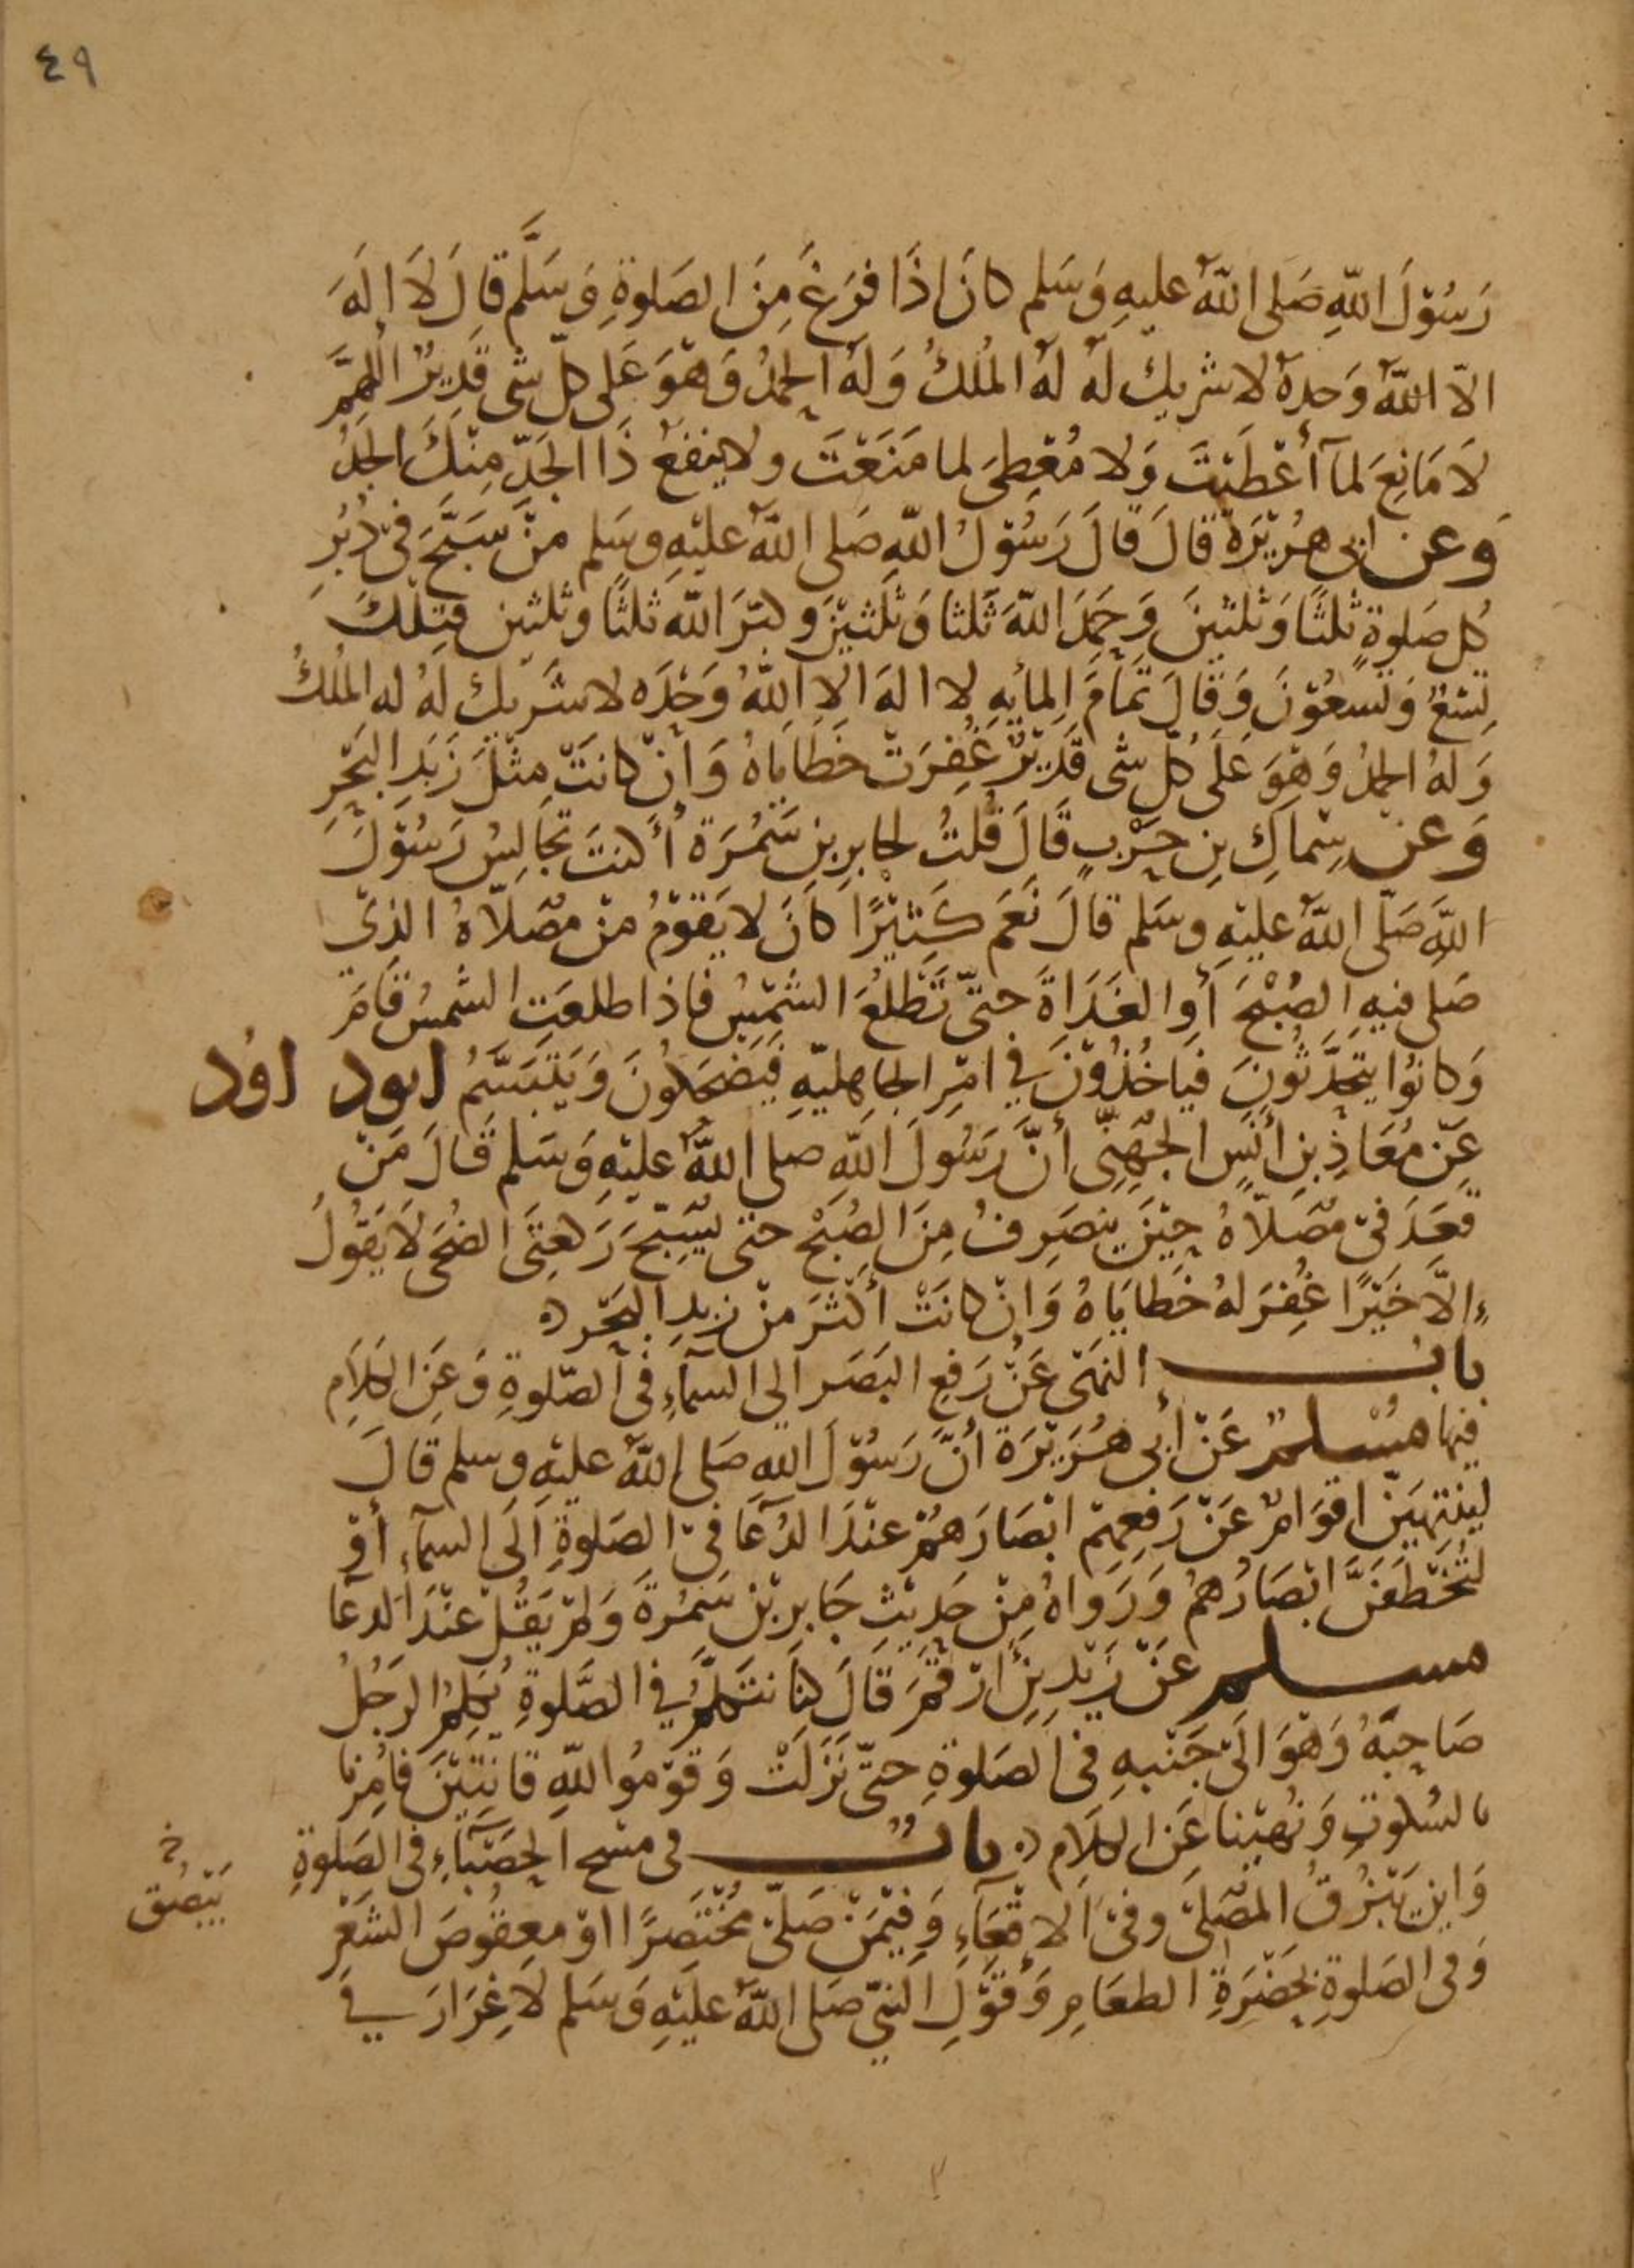 ٤٩
رَسُوْلَ اللّهِ صَلَى اللّهُ عليهِ وَسَلم كانَ اذَا فرَغَ مِنَ الصَلوةِ وَسَلَّم قالَ لَا الَهَ
الّا اللّهُ وَحدهُ لا شريك لهُ لهُ المُلكُ وَلهُ الحمدُ وَهوَ عَلى كلّ شى قَديرٌ اللهمَّ
لَا مَانِعَ لمآ أعْطَيْتَ وَلا مُعْطِىَ لما مَنَعْتَ ولا ينفعُ ذَا الجَدّ مِنْكَ الجَدُّ
وَعن ابى هُرَيْرَة قالَ قالَ رَسُوْلُ اللّهِ صَلى اللّهُ عليْهِ وسَلم منْ سَبَّحَ فىْ دُبُرِ
كُل صَلوةٍ ثلثًا وَثلثينَ وَحَمَدَ اللّهَ ثَلثا وَثلَثيْنَ وكبّرَ اللّه ثلثًا وثلثين فتِلكَ
تِسْعٌ وَتسعُوْنَ وَقالَ تمَامَ المايهِ لا الهَ الا اللّهُ وَحْدَه لا شَريك لهُ له المُلكُ
وَلهُ الحمدُ وَهوَ عَلَى كُلّ شى قَدَيْرٌ غُفِرَتْ خَطَايَاهُ وَانْ كانَتْ مِثْلَ زَبَدِ البَحْرِ
وَعن سِماكِ بنِ حَرْبٍ قَالَ قُلتُ لجابرِ بنِ سَمُرَة أكنتَ تجَالِسُ رَسُوْلَ
اللّهِ صَلّى اللّهُ عليْهِ وسَلم قالَ نَعَم كَثيْرًا كانَ لا يَقوْمُ منْ مُصَلّاهُ الذِىْ
صَلى فيهِ الصُبْحَ أوِ الغَدَاةَ حتىّ تَطْلعَُ الشّمسُ فاذا طلعَتِ الشمسُ قامَ
وَكانوُا يتحَدَّثُونَ فيَاخُذُوْنَ في امْرِ الجاهليّهِ فيَضْحَكونَ وَيَتَبسَّمُ ابود اوُد
عَنْ مُعَاذِ بنِ أنَسٍ الجُهَنِىّ أنَّ رَسُولَ اللّهِ صلى اللّهُ عليْهِ وَسَلم قَالَ مَنْ
قعَدَ فىْ مُصَلاّهُ حِيْنَ ينصَرِفُ مِنَ الصُبْحِ حتى يسَبِّحَ رَكعتَىِ الضُحَى لَا يَقُولُ
الّا خَيْرًا غُفِرَ لهُ خَطايَاهُ وَانْ كانَتْ أكْثرَ منْ زبدِ البَحْر
باب النهْى عَنْ رَفعِ البَصَر الى السمآءِ فى الصّلوةِ وَعَن الكلَامِ
فيها مُسْلمٌ عَنْ أبى هُرَيْرَة أنّ رَسُوْلَ اللّهِ صَلى اللّهُ عليْهِ وسلم قالَ
لينتهيَنّ اقوَامٌ عَنْ رَفعِهِمْ ابْصَارَهمُ عنْدَ الدُعَآ فىْ الصَلوةِ الَى السمآءِ أوْ
لتُخْطَفَنَّ ابْصَارُهمُ وَرَوَاهُ مِنْ حَدِيْثِ جَابرِ بْن سَمُرةَ وَلم يَقُلْ عنْدَ الدعَا
مسلم عَنْ زَيْدِ بنِ أرْقمَ قَالَ كنَا نتَكلّمُ فى الصَّلوةِ يُكلِمُ الرَجُلُ
صَاحِبَهُ وَهْوَ الىْ جَنْبهِ فى الصَلوةِ حتىّ نَزَلتْ وَقوْمُوا للّهِ قانتيْنَ فامُرِنا
بالسُكوتِ وَنُهيْنا عَنِ الكلَامِ بابٌ فى مسْح الحَصْبَآءِ فى الصَلوةِ
وَاينَ يَبْزُقُ المُصَلىّ وفى الاقْعَآءِ وَفيْمَنْ صَلىّ مُخْتَصَرًا اوْ معقوُصَ الشَعْرِ
خ
يَبْصُق
وَفى الصَلوةِ بحَضْرَةِ الطعَامِ وَقوْلِ النبيّ صَلى اللّهُ عليْهِ وَسَلم لَا غِرَارَ فى